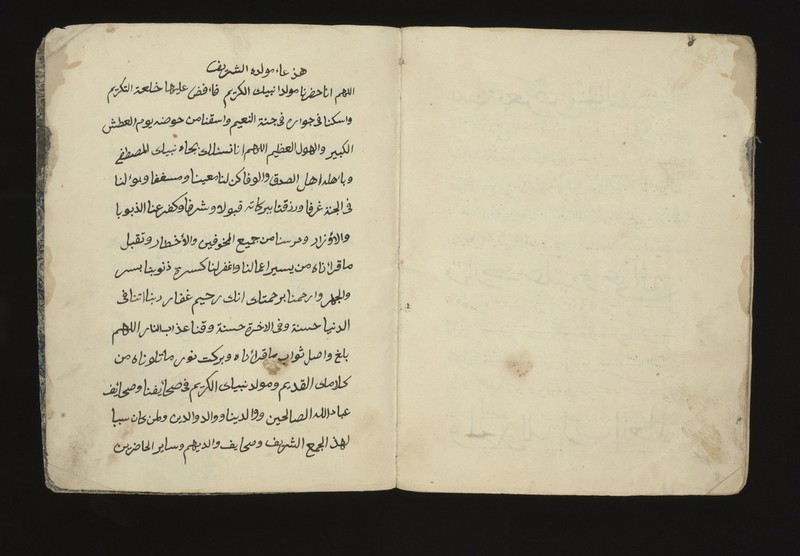 هذ عاء مولده الشريف
اللهم انا حضرنا مولد انبيك الكريم فافض علينا خلعة التكريم
واسكنا في جواره في جنة النعيم واسقنا من حوضه يوم العطش
الكبير والهول العظيم اللهم انا نسئلك بجاه نبيك المصطفى
وباهله اهل الصدق والوفا كن لنا معينا ومسعفا وبوئ لنا
في الجنة غرفا ورزقنا ببركاته قبولا وشرفا وكفر عنا الذنوبا
والاوزار وحرسنا من جميع المخوفين والأخطار وتقبل
ما قرأناه من يسير اعمالنا واغفر لنا كسره ذنوبنا بسر
والجهر وارحمنا برحمتك انك رحيم غفار ربنا اتنا في
الدنيا حسنة وفي الاخرة حسنة وقنا عذاب النار اللهم
بلغ واصل ثواب ما قرأناه وبركت نور ما تلوناه من
كلامك القديم ومولد نبيك الكريم في صحائفنا وصحائف
عباد الله الصالحين ووالدينا ووالد والدين ولمن كان سببا
لهذ الجمع الشريف وصحايف والديهم وساير الحاضرين